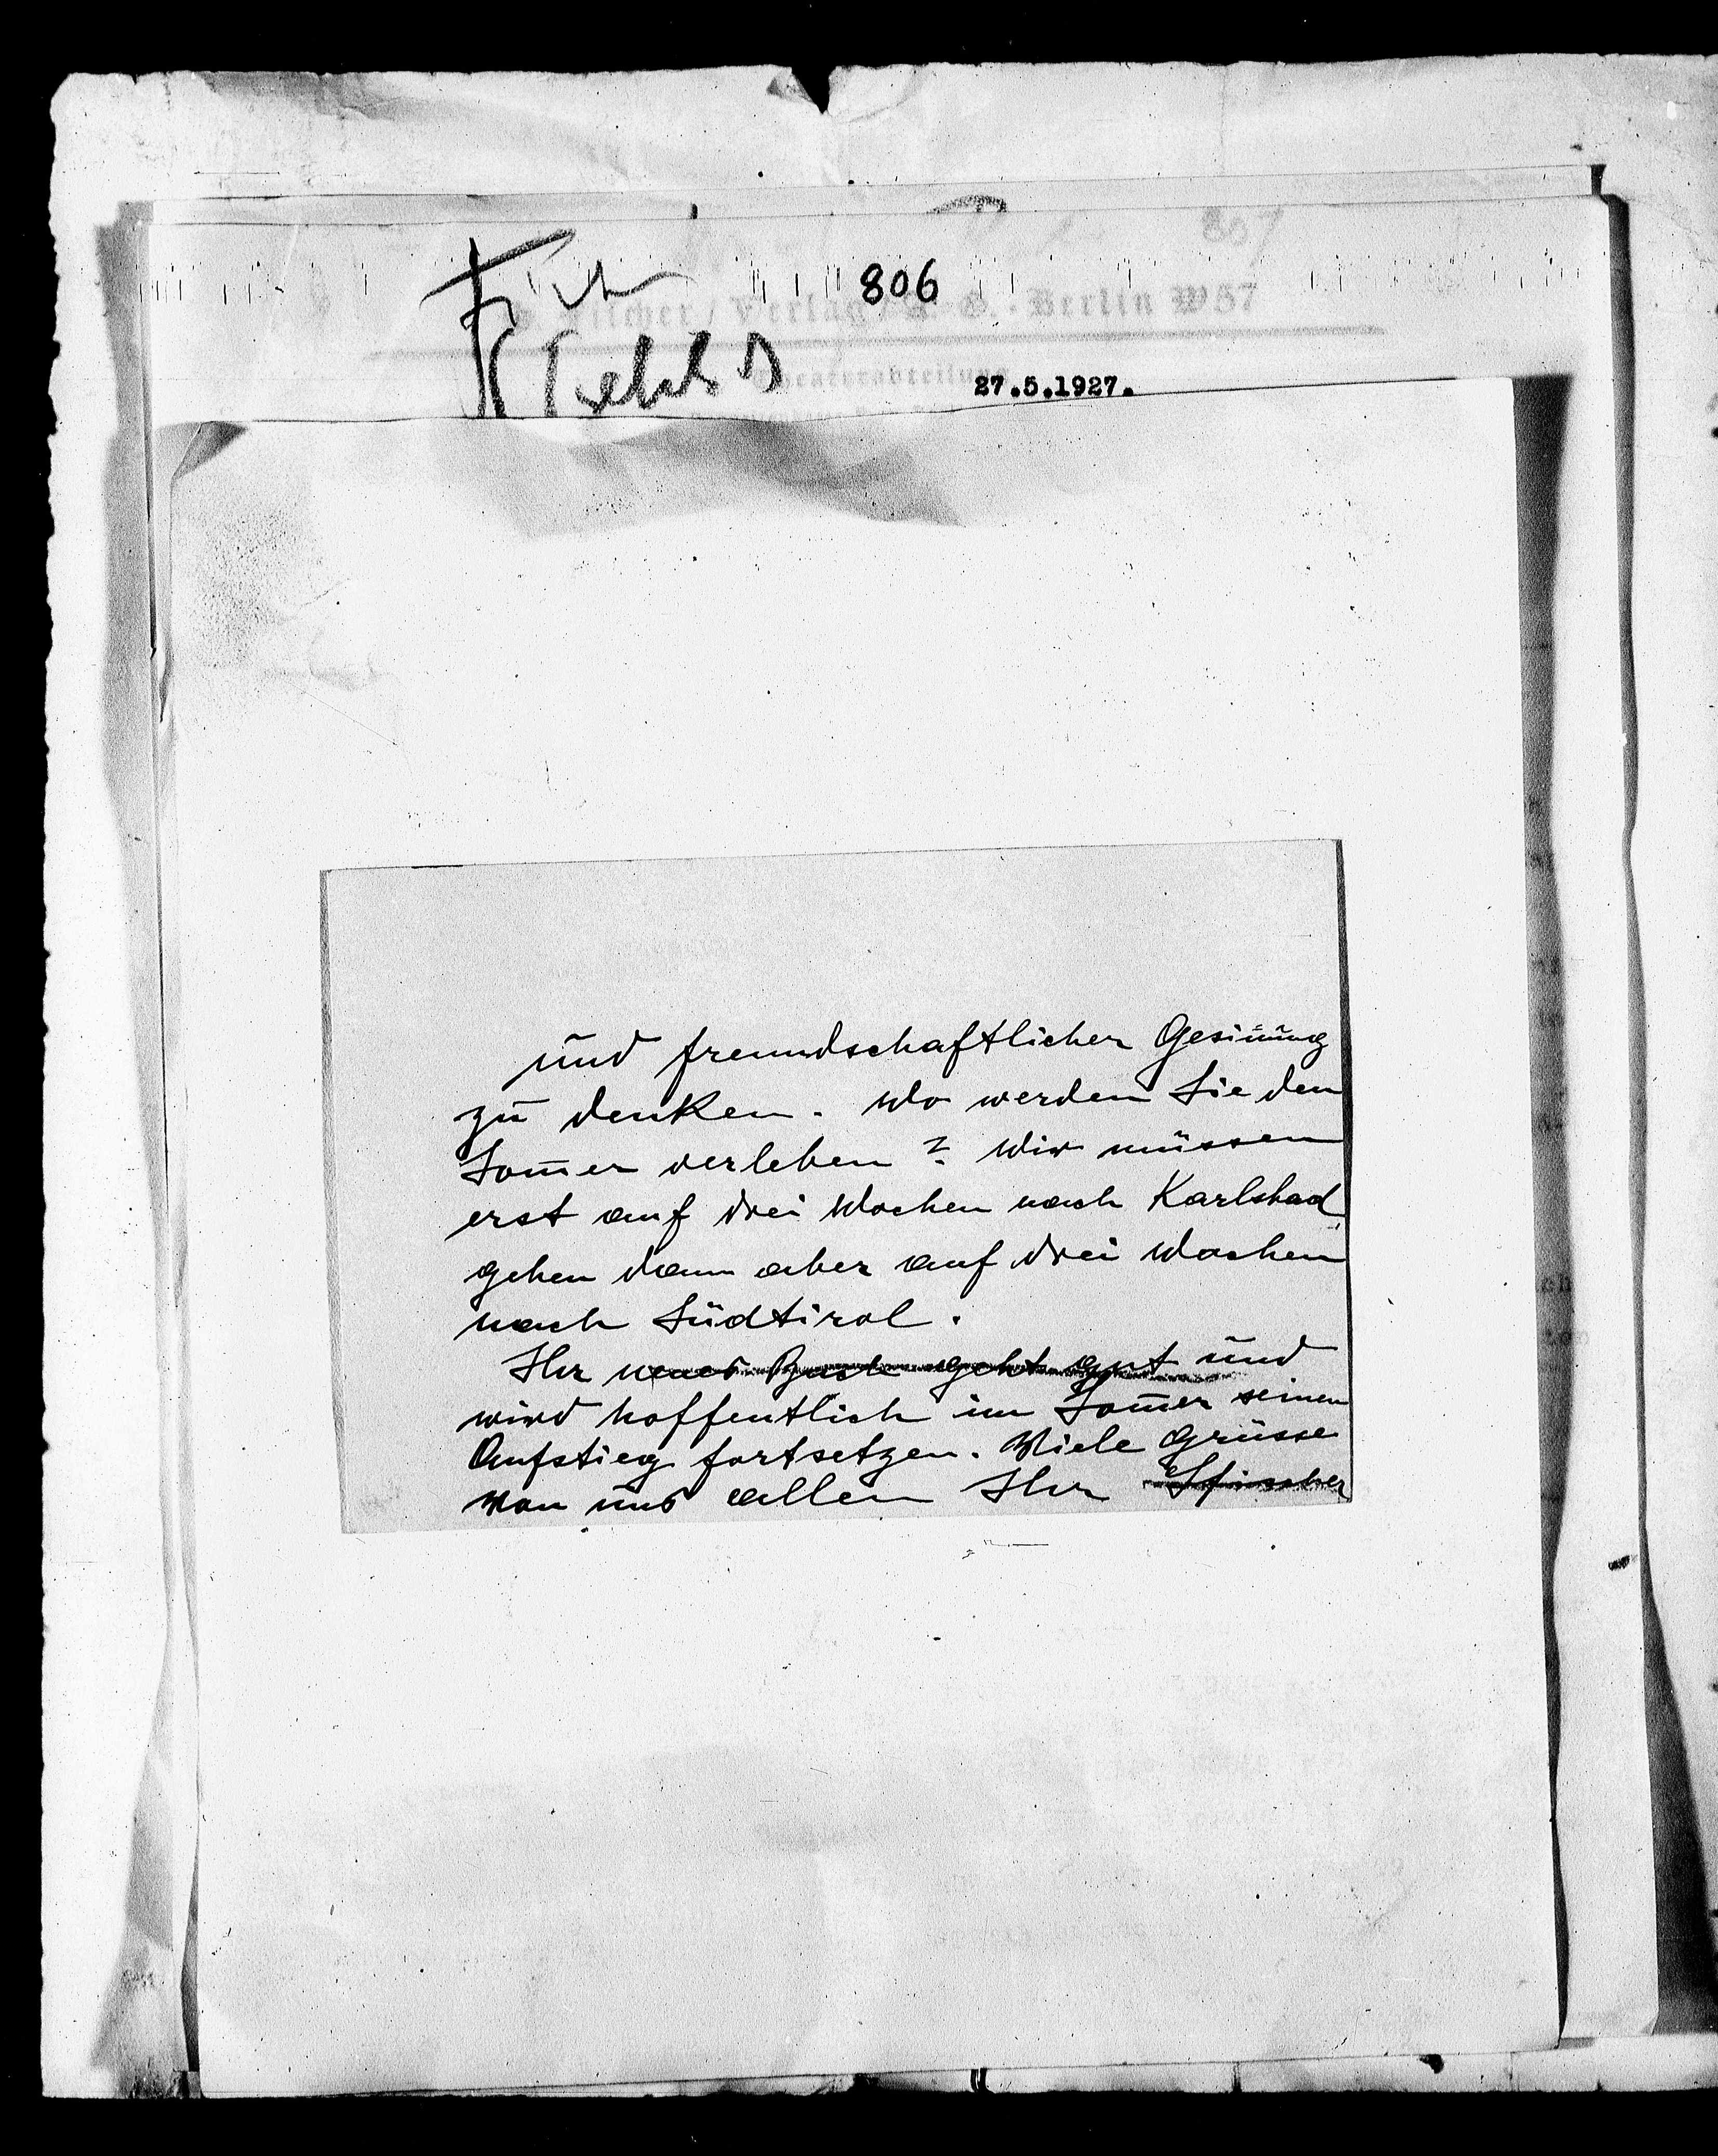 806
S. Fischer / Verlag / A. G. · Berlin W 57
Theaterabteilung
27.5.1927.
und freundschaftlicher Gesiñung
zu denken. Wo werden Sie den
Som̄er verleben? Wir müssen
erst auf drei Wochen nach Karlsbad,
gehen dann aber auf drei Wochen
nach Südtirol.
Ihr neues Buch geht gut und
wird hoffentlich im Som̄er seinen
Aufstieg fortsetzen. Viele Grüsse
von uns allen Ihr SFischer